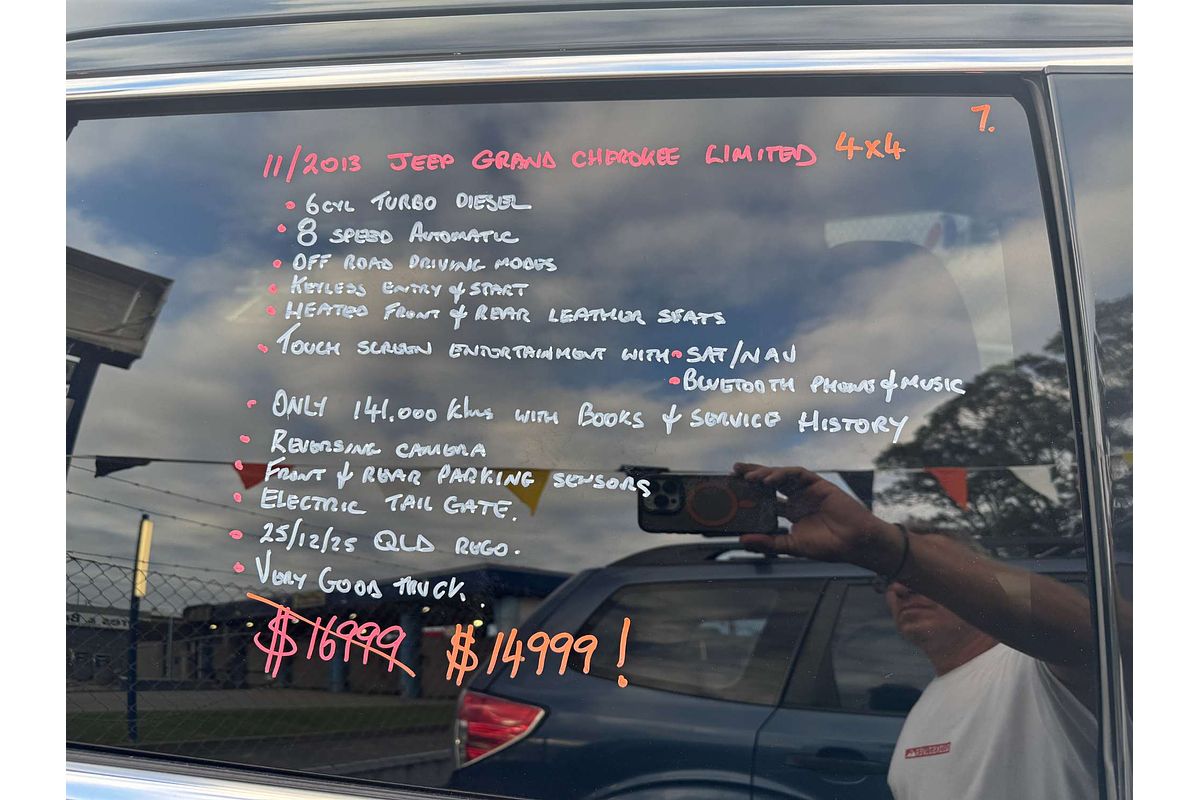 7.
11/2013 JEEP GRAND CHEROKEE LIMITED 4x4
• 6CYL TURBO DIESEL
• 8 SPEED AUTOMATIC
• OFF ROAD DRIVING MODES
• KEYLESS ENTRY & START
• HEATED FRONT & REAR LEATHER SEATS
• TOUCH SCREEN ENTERTAINMENT WITH • SAT/NAV
• BLUETOOTH PHONE & MUSIC
• ONLY 141,000 klms WITH BOOKS & SERVICE HISTORY
• REVERSING CAMERA
• FRONT & REAR PARKING SENSORS
• ELECTRIC TAIL GATE.
• 25/12/25 QLD REGO.
• VERY GOOD TRUCK..
$16999 $14999!